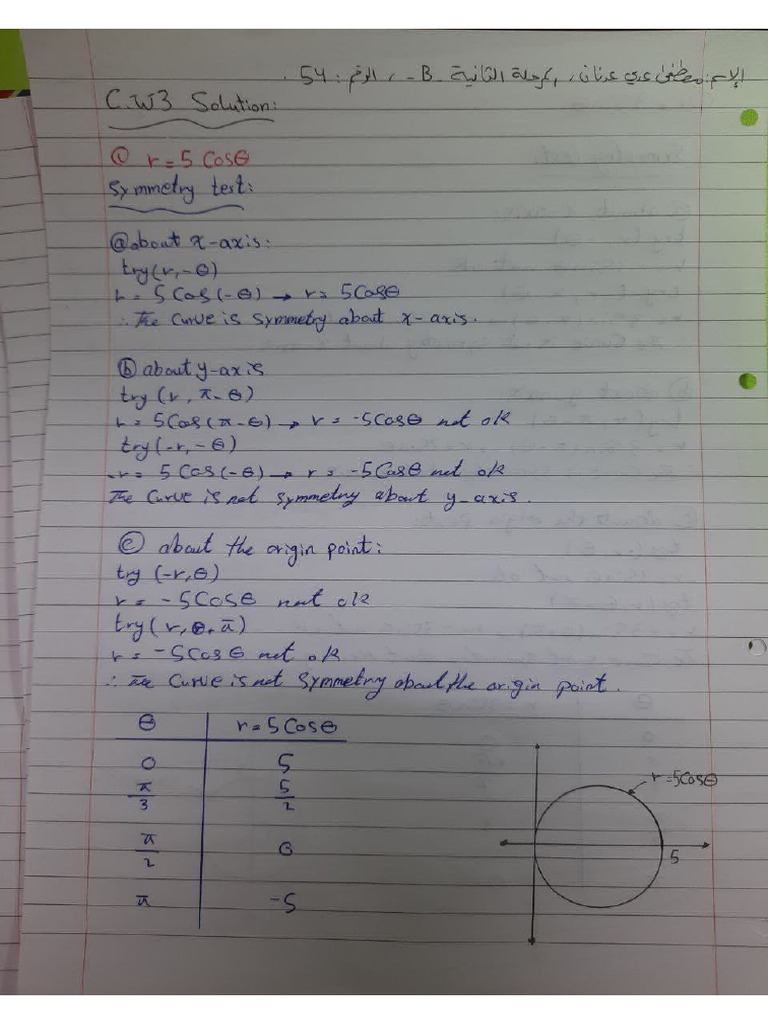 الاسم: مصطفى عدي عدنان، المرحلة الثانية -B-، الرقم: 54.
C.W3 Solution:
① r = 5 Cosθ
Symmetry test:
ⓐ about x-axis:
try (r, -θ)
r = 5 Cos(-θ) → r = 5Cosθ
∴ The Curve is symmetry about x-axis.
ⓑ about y-axis
try (r, π-θ)
r = 5Cos(π-θ) → r = -5Cosθ not ok
try (-r, -θ)
-r = 5 Cos(-θ) → r = -5Cosθ not ok
The Curve is not symmetry about y-axis.
ⓒ about the origin point:
try (-r, θ)
r = -5Cosθ not ok
try (r, θ+π)
r = -5Cosθ not ok
∴ The Curve is not symmetry about the origin point.
θ r = 5 Cosθ
0 5
π/3 5/2
π/2 0
π -5
r=5Cosθ
5